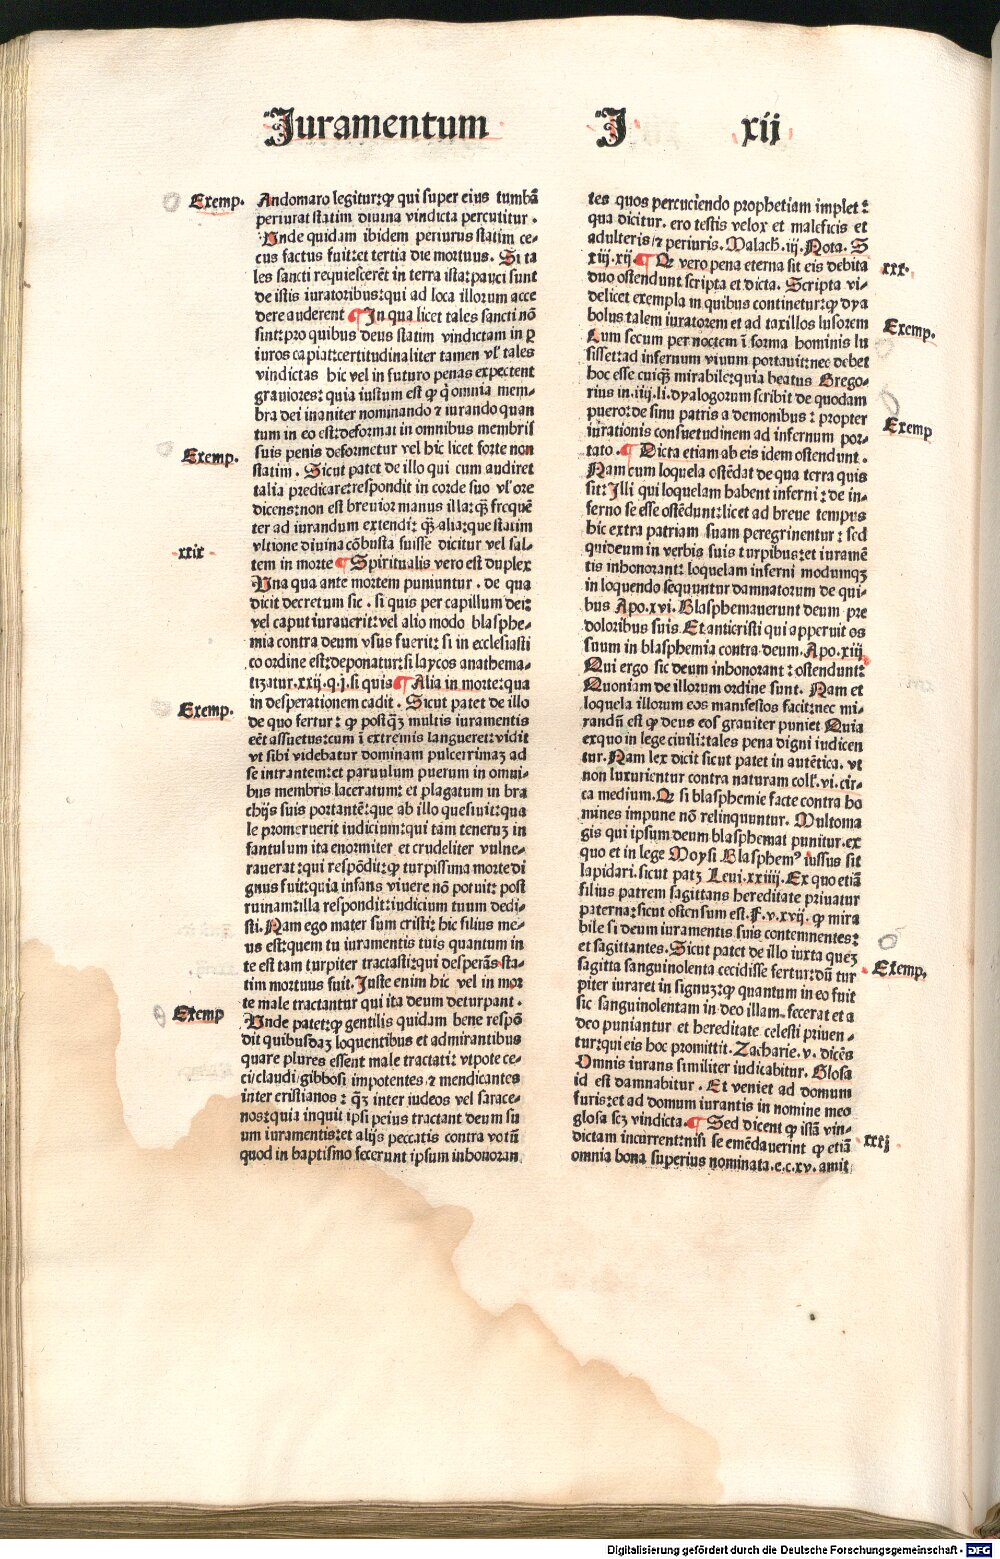 Iuramentum I xij
Exemp. Andomaro legitur: qꝫ qui super eius tumbā
periurat statim diuina vindicta percutitur .
Vnde quidam ibidem periurus statim ce⸗
cus factus fuit: et tertia die mortuus. Si ta
les sancti requiescerēt in terra ista: pauci sunt
de istis iuratoribus: qui ad loca illorum acce
dere auderent ¶ In qua licet tales sancti nō
sint: pro quibus deus statim vindictam in ꝑ
iuros capiat: certitudinaliter tamen vl' tales
vindictas hic vel in futuro penas expectent
grauiores: quia iustum est ꝙ q̄ omnia mem⸗
bra dei inaniter nominando ⁊ iurando quan
tum in eo est: deformat in omnibus membris
suis penis deformetur vel hic licet forte non
Exemp. statim . Sicut patet de illo qui cum audiret
talia predicare: respondit in corde suo vl' ore
dicens: non est breuior manus illa: q̄ꝫ frequē
ter ad iurandum extendi: q̄ꝫ alia: que statim
xxix vltione diuina cōbusta fuisse dicitur vel sal⸗
tem in morte ¶ Spiritualis vero est duplex
Vna qua ante mortem puniuntur . de qua
dicit decretum sic . si quis per capillum dei:
vel caput iurauerit: vel alio modo blasphe⸗
mia contra deum vsus fuerit: si in ecclesiasti
co ordine est: deponatur: si laycos anathema⸗
tizatur .xxij.q.j. si quis ¶ Alia in morte: qua
in desperationem cadit . Sicut patet de illo
Exemp. de quo fertur: ꝙ postq̄ꝫ multis iuramentis
eēt assuetus: cum ī extremis langueret: vidit
vt sibi videbatur dominam pulcerrimaꝫ ad
se intrantem: et paruulum puerum in omni⸗
bus membris laceratum: et plagatum in bra
chijs suis portantē: que ab illo quesiuit: qua
le promeruerit iudicium: qui tam teneruꝫ in
fantulum ita enormiter et crudeliter vulne⸗
rauerat: qui respōdit: ꝙ turpissima morte di
gnus fuit: quia infans viuere nō potuit: post
ruinam: illa respondit: iudicium tuum dedi⸗
sti. Nam ego mater sum cristi: hic filius me⸗
us est: quem tu iuramentis tuis quantum in
te est tam turpiter tractasti: qui desperās sta⸗
tim mortuus fuit. Iuste enim hic vel in mor
te male tractantur qui ita deum deturpant .
Exemp Vnde patet: ꝙ gentilis quidam bene respō
dit quibusdaꝫ loquentibus et admirantibus
quare plures essent male tractati: vtpote ce⸗
ci/claudi/gibbosi impotentes/ ⁊ mendicantes
inter cristianos : q̄ꝫ inter iudeos vel sarace⸗
nos: quia inquit ipsi peius tractant deum su
um iuramentis: et alijs peccatis contra votū
quod in baptismo fecerunt ipsum inhonoran
tes quos percuciendo prophetiam implet:
qua dicitur. ero testis velox et maleficis et
adulteris/ ⁊ periuris. Malach. iij. Nota. S
xiij.xij ¶ Qꝫ vero pena eterna sit eis debita xxx.
duo ostendunt scripta et dicta. Scripta vi⸗
delicet exempla in quibus continetur: ꝙ dya
bolus talem iuratorem et ad taxillos lusorem Exemp.
Cum secum per noctem ī forma hominis lu
sisset: ad infernum viuum portauit: nec debet
hoc esse cuiqꝫ mirabile: quia beatus Grego⸗
rius in .iiij. li. dyalogorum scribit de quodam
puero: de sinu patris a demonibus : propter Exemp
iurationis consuetudinem ad infernum por⸗
tato . ¶ Dicta etiam ab eis idem ostendunt .
Nam cum loquela ostēdat de qua terra quis
sit: Illi qui loquelam habent inferni : de in⸗
ferno se esse ostēdunt: licet ad breue tempus
hic extra patriam suam peregrinentur : sed
quideum in verbis suis turpibus: et iuramē
tis inhonorant: loquelam inferni modumqꝫ
in loquendo sequuntur damnatorum de qui⸗
bus Apo.xvi. Blasphemauerunt deum pre
doloribus suis. Et anticristi qui apperuit os
suum in blasphemia contra deum. Apo.xiij
Qui ergo sic deum inhonorant: ostendunt:
Quoniam de illorum ordine sunt. Nam et
loquela illorum eos manifestos facit: nec mi⸗
randū est ꝙ deus eos grauiter puniet Quia
exquo in lege ciuili: tales pena digni iudicen
tur. Nam lex dicit sicut patet in autētica. vt
non luxurientur contra naturam coll'.vi. cir⸗
ca medium. Qꝫ si blasphemie facte contra ho
mines impune nō relinquuntur. Multoma
gis qui ipsum deum blasphemat punitur. ex
quo et in lege Moysi Blasphemꝰ iussus sit
lapidari. sicut patꝫ Leui.xxiiij. Ex quo etiā
filius patrem sagittans hereditate priuatur
paterna: sicut ostensum est. F.v.xvij. ꝙ mira
bile si deum iuramentis suis contemnentes:
et sagittantes. Sicut patet de illo iuxta queꝫ
sagitta sanguinolenta cecidisse fertur: dū tur Exemp.
piter iuraret in signuꝫ: ꝙ quantum in eo fuit
sic sanguinolentam in deo illam fecerat et a
deo puniantur et hereditate celesti priuen⸗
tur: qui eis hoc promittit. Zacharie.v. dicēs
Omnis iurans similiter iudicabitur. Glosa
id est damnabitur . Et veniet ad domum
furis: et ad domum iurantis in nomine meo
glosa scꝫ vindicta. ¶ Sed dicent ꝙ istā vin⸗
dictam incurrent: nisi se emēdauerint ꝙ etiā xxxj
omnia bona superius nominata.e.c.xv. amit
Digitalisierung gefördert durch die Deutsche Forschungsgemeinschaft - DFG